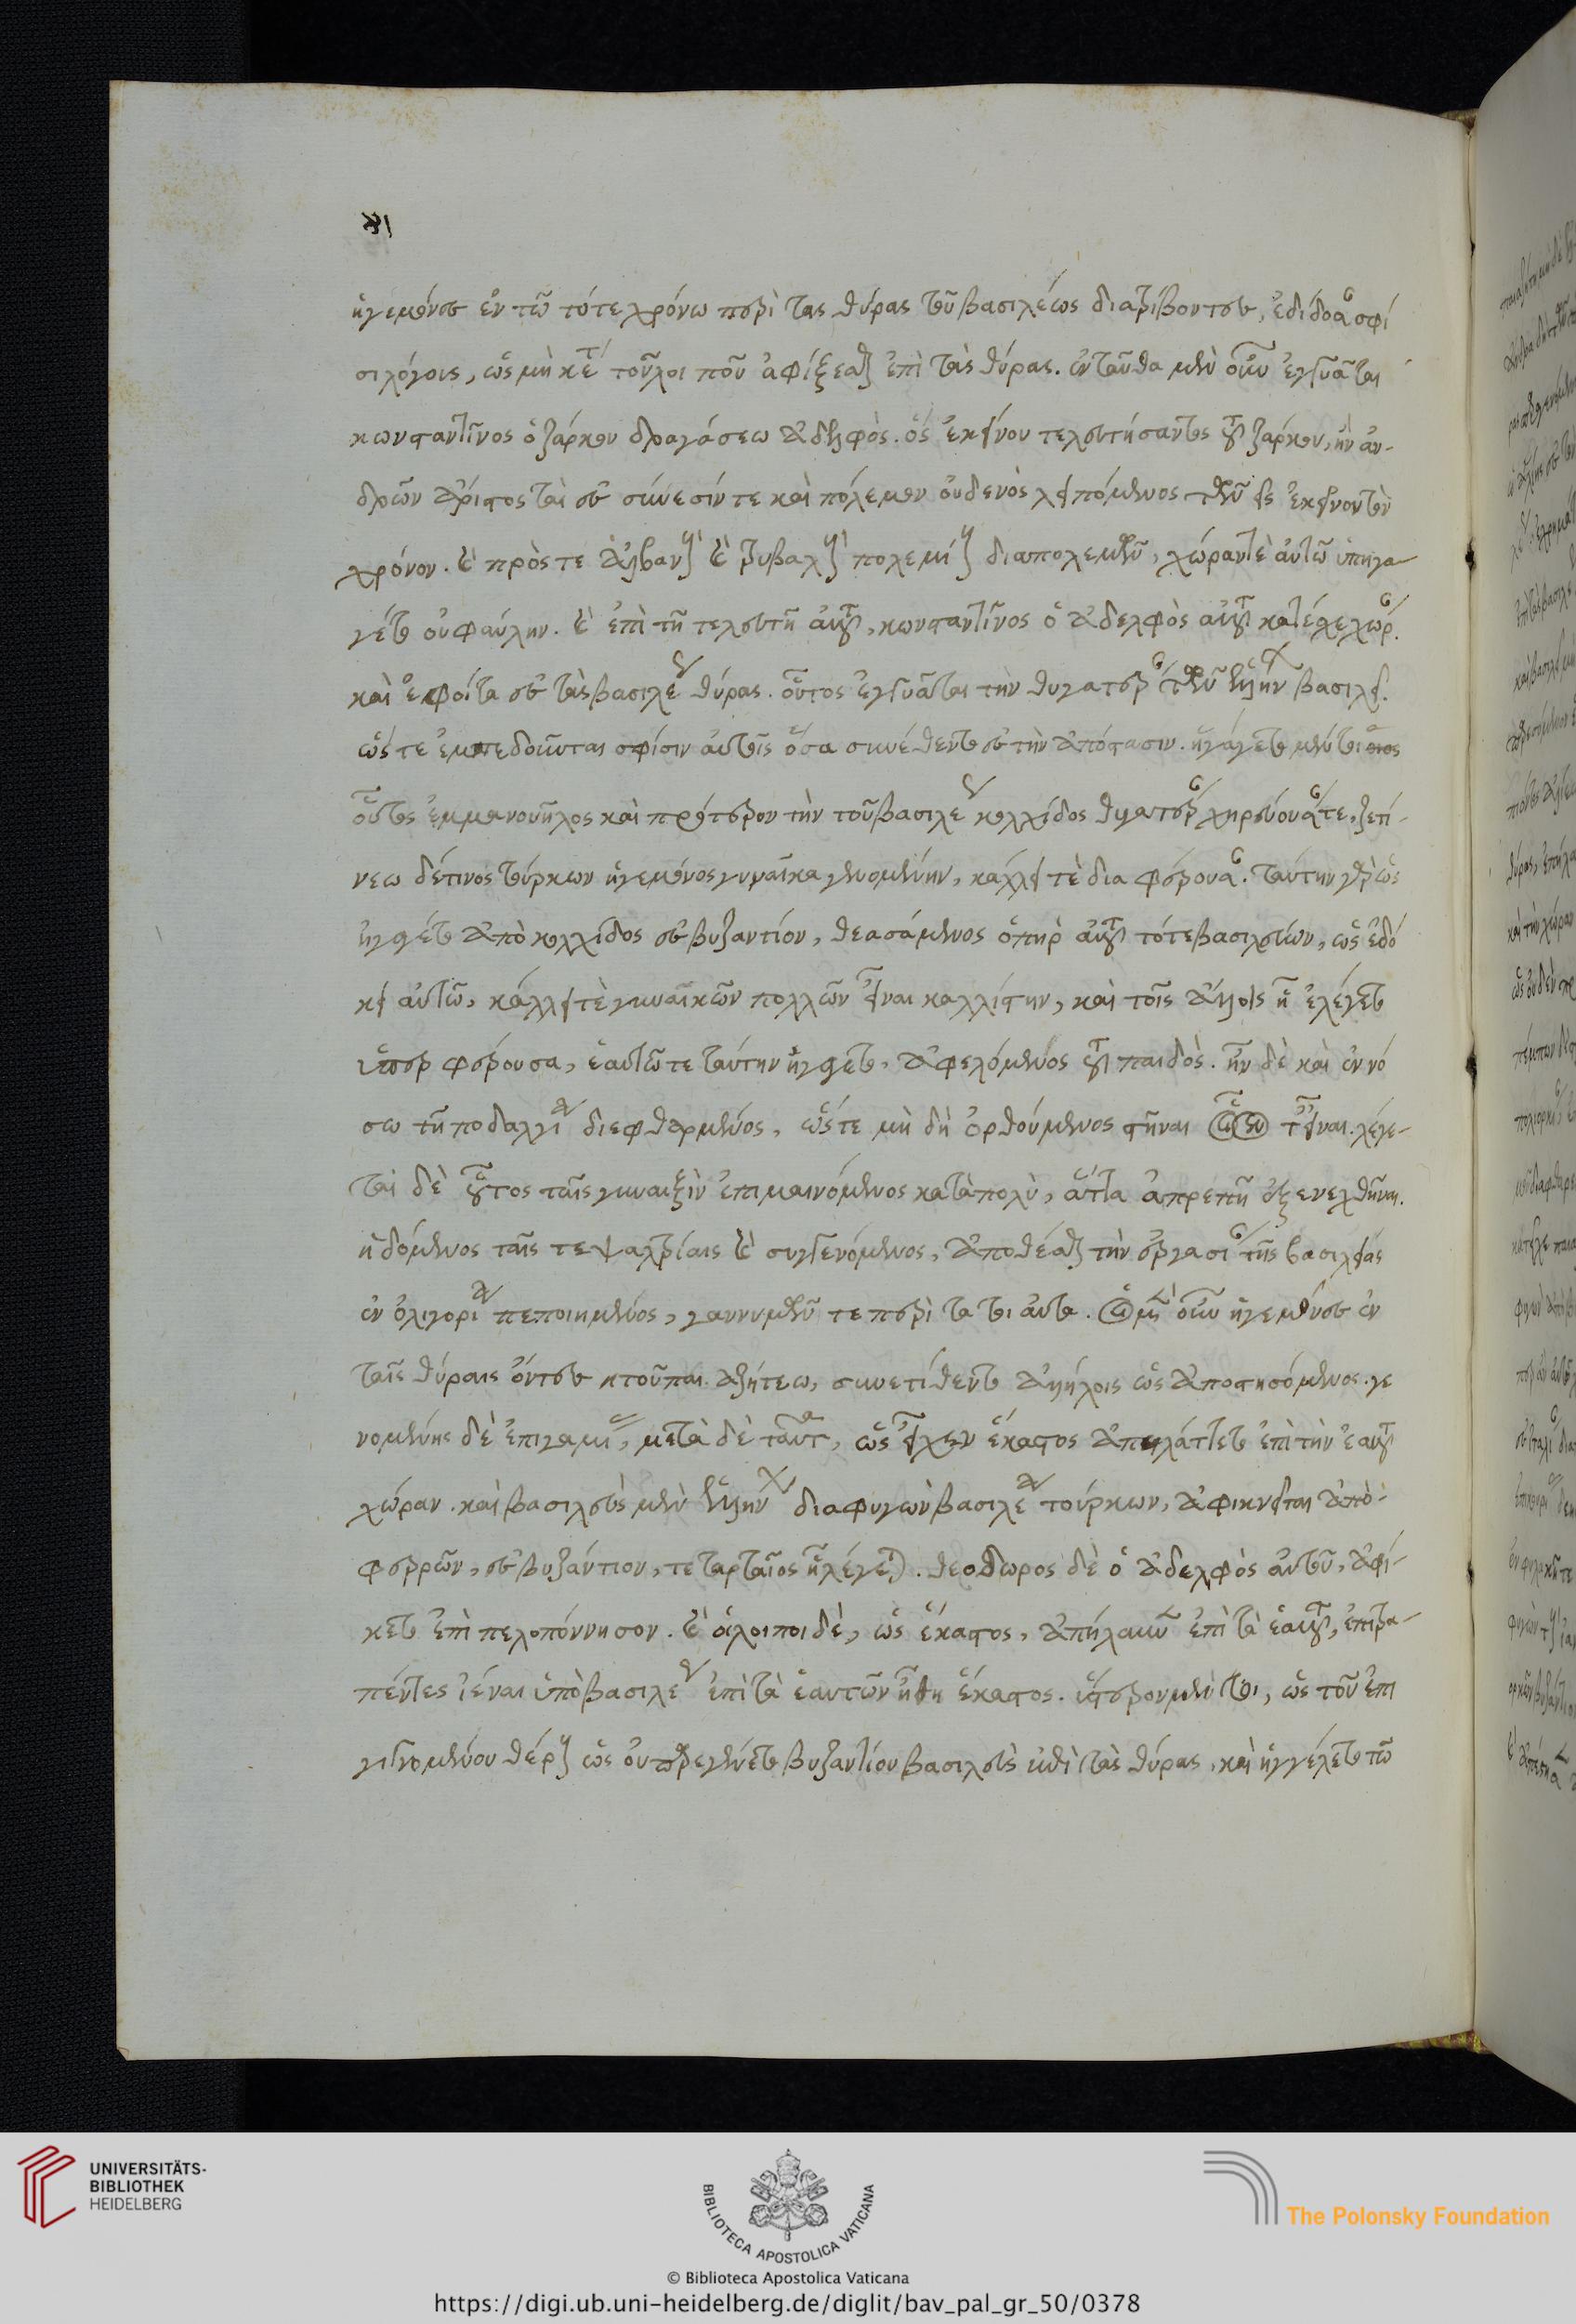 ἡγεμόνας ἐν τῶ τότε χρόνω περὶ τας θύρας τοῦ βασιλέως διατρίβοντας, ἐδίδοσαν σφί
σι λόγοις, ὡς μὴκέτι τοῦ λοιποῦ ἀφίξεσθαι ἐπὶ τὰς θύρας. ἐνταῦθα μὲν οὖν ἐγγυᾶται
κωνσταντῖνος ὁ ζάρκου δραγάσεω ἀδελφὸς. ὃς ἐκείνου τελευτήσαντος τοῦ ζάρκου, ἦν ἀν-
δρῶν ἄριστος τὰ ἐς σύνεσίν τε καὶ πόλεμον οὐδενὸς λειπόμενος τῶν εἰς ἐκεῖνον τὸν
χρόνον. καὶ πρὸς τε ἀλβανοὺς καὶ τριβαλοὺς πολεμίους διαπολεμῶν, χώραν τὲ αὐτῶ ὑπηγά-
γετο οὐ φαύλην. καὶ ἐπὶ τῆ τελευτῆ αὐτοῦ, κωνσταντῖνος ὁ ἀδελφὸς αὐτοῦ κατέσχε χώραν.
καὶ ἐφοίτα ἐς τὰς βασιλέως θύρας. οὗτος ἐγγυᾶται τὴν θυγατέρα τῶν ἑλλήνων βασιλεῖ.
ὥστε ἐμπεδοῦνται σφίσιν αὐτοῖς ὅσα συνέθεντο ἐς τὴν ἀπόστασιν. ἠγάγετο μέντοι
οὗτος ἐμμανουῆλος καὶ πρότερον τὴν τοῦ βασιλέως κολχίδος θυγατέρα χηρεύουσάν τε, ζετί-
νεω δέ τινος τούρκων ἡγεμόνος γυναῖκα γενομένην, κάλλει τὲ διαφέρουσαν. ταύτην γὰρ ὡς
ἤγετο ἀπὸ κολχίδος ἐς βυζαντίον, θεασάμενος ὁ πατὴρ αὐτοῦ τότε βασιλεύων, ὡς ἐδό
κει αὐτῶ, κάλλει τὲ γυναικῶν πολλῶν εἶναι καλλίστην, καὶ τοῖς ἄλλοις ἧ ἐλέγετο
ὑπερφέρουσα, ἑαυτῶ τε ταύτην ἤγετο, ἀφελόμενος τοῦ παιδὸς. ἦν δὲ καὶ ἐν νό
σω τῆ ποδαλγία διεφθαρμένος, ὥστε μὴ δὴ ὀρθούμενος στῆναι οἷόν τ' εἶναι. λέγε-
ται δὲ οὗτος ταῖς γυναιξὶν ἐπιμαινόμενος κατὰ πολὺ, ἄττα ἀπρεπῆ ἐξενεχθῆναι.
ἡδόμενος ταῖς τε ψαλτρίαις καὶ συγγενόμενος, ἀποθέσθαι τὴν ἐργασίαν τῆς βασιλείας
ἐν ὀλιγορία πεποιημένος, γαννυμένου τε περὶ τα τοιαῦτα. οἱ μὲν οὖν ἡγεμόνες ἐν
ταῖς θύραις ὄντες τοῦ παιαζήτεω, συνετίθεντο ἀλλήλοις ὡς ἀποστησόμενος. γε
νομένης δὲ ἐπιγαμίας, μετὰ δὲ ταῦτα, ὡς εἶχεν ἕκαστος ἀπηλάττετο ἐπὶ τὴν ἑαυτοῦ
χώραν. καὶ βασιλεὺς μὲν ἑλλήνων διαφυγὼν βασιλέα τούρκων, ἀφικνεῖται ἀπὸ-
φερρῶν, ἐς βυζάντιον, τεταρταῖος ἧ λέγεται. θεόδωρος δὲ ὁ ἀδελφὸς αὐτοῦ, ἀφί-
κετο ἐπὶ πελοπόννησον. καὶ οἱ λοιποι δὲ, ὡς ἕκαστος, ἀπήλαυνον ἐπὶ τὰ ἑαυτοῦ, ἐπιτρα-
πέντες ἰέναι ὑπὸ βασιλέως ἐπὶ τὰ ἑαυτῶν ἤθη ἕκαστος. ὕστερον μέντοι, ὡς τοῦ ἐπι
γιγνομένου θέρους ὡς οὐ παρεγένετο βυζαντίου βασιλεὺς ἐπὶ τὰς θύρας, καὶ ἠγγέλετο τῶ
UNIVERSITÄTS-
BIBLIOTHEK
HEIDELBERG
BIBLIOTECA APOSTOLICA VATICANA
The Polonsky Foundation
© Biblioteca Apostolica Vaticana
https://digi.ub.uni-heidelberg.de/diglit/bav_pal_gr_50/0378